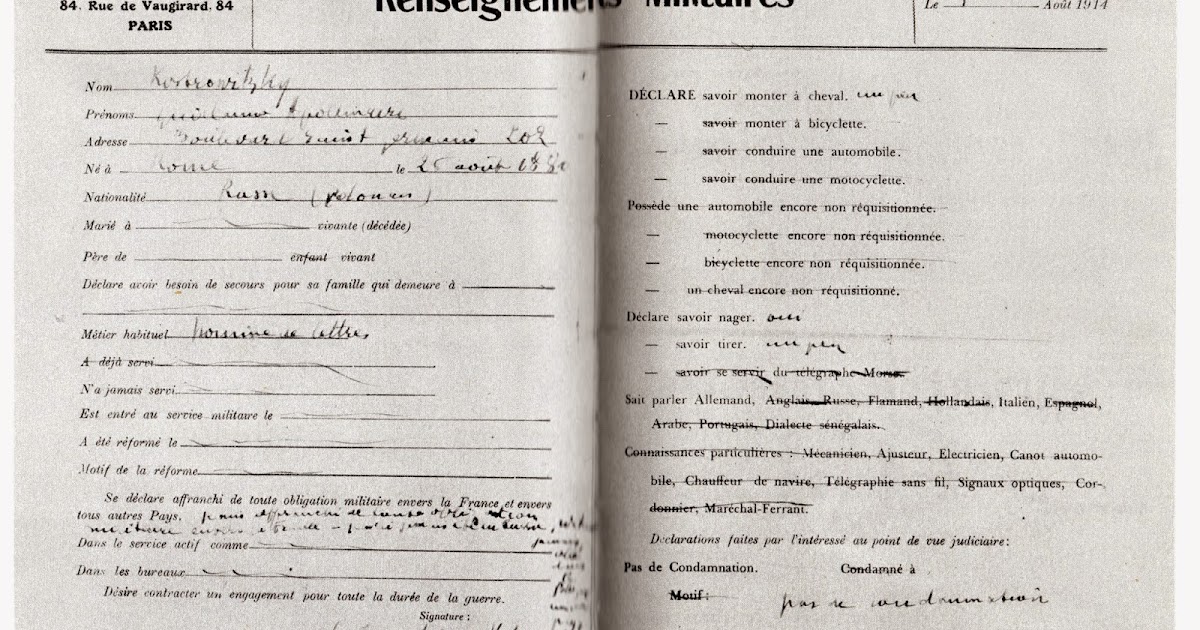 84. Rue de Vaugirard. 84
PARIS
Renseignements Militaires
Le Août 1914
Nom Kostrowitzky
Prénoms. Guillaume Apollinaire
Adresse Boulevard Saint Germain 202
Né à Rome le 26 août 1880
Nationalité Russe (polonais)
Marié à vivante (décédée)
Père de enfant vivant
Déclare avoir besoin de secours pour sa famille qui demeure à
Métier habituel homme de lettres
A déjà servi
N'a jamais servi
Est entré au service militaire le
A été réformé le
Motif de la réforme
Se déclare affranchi de toute obligation militaire envers la France et envers
tous autres Pays.
Dans le service actif comme
Dans les bureaux
Désire contracter un engagement pour toute la durée de la guerre.
Signature :
DÉCLARE savoir monter à cheval. un peu
— savoir monter à bicyclette.
— savoir conduire une automobile.
— savoir conduire une motocyclette.
Possède une automobile encore non réquisitionnée.
— motocyclette encore non réquisitionnée.
— bicyclette encore non réquisitionnée.
— un cheval encore non réquisitionné.
Déclare savoir nager. oui
— savoir tirer. un peu
— savoir se servir du télégraphe Morse.
Sait parler Allemand, Anglais, Russe, Flamand, Hollandais, Italien, Espagnol,
Arabe, Portugais, Dialecte sénégalais.
Connaissances particulières : Mécanicien, Ajusteur, Electricien, Canot automo-
bile, Chauffeur de navire, Télégraphie sans fil, Signaux optiques, Cor-
donnier, Maréchal-Ferrant.
Déclarations faites par l'intéressé au point de vue judiciaire :
Pas de Condamnation. Condamné à
Motif :
pas de condamnation